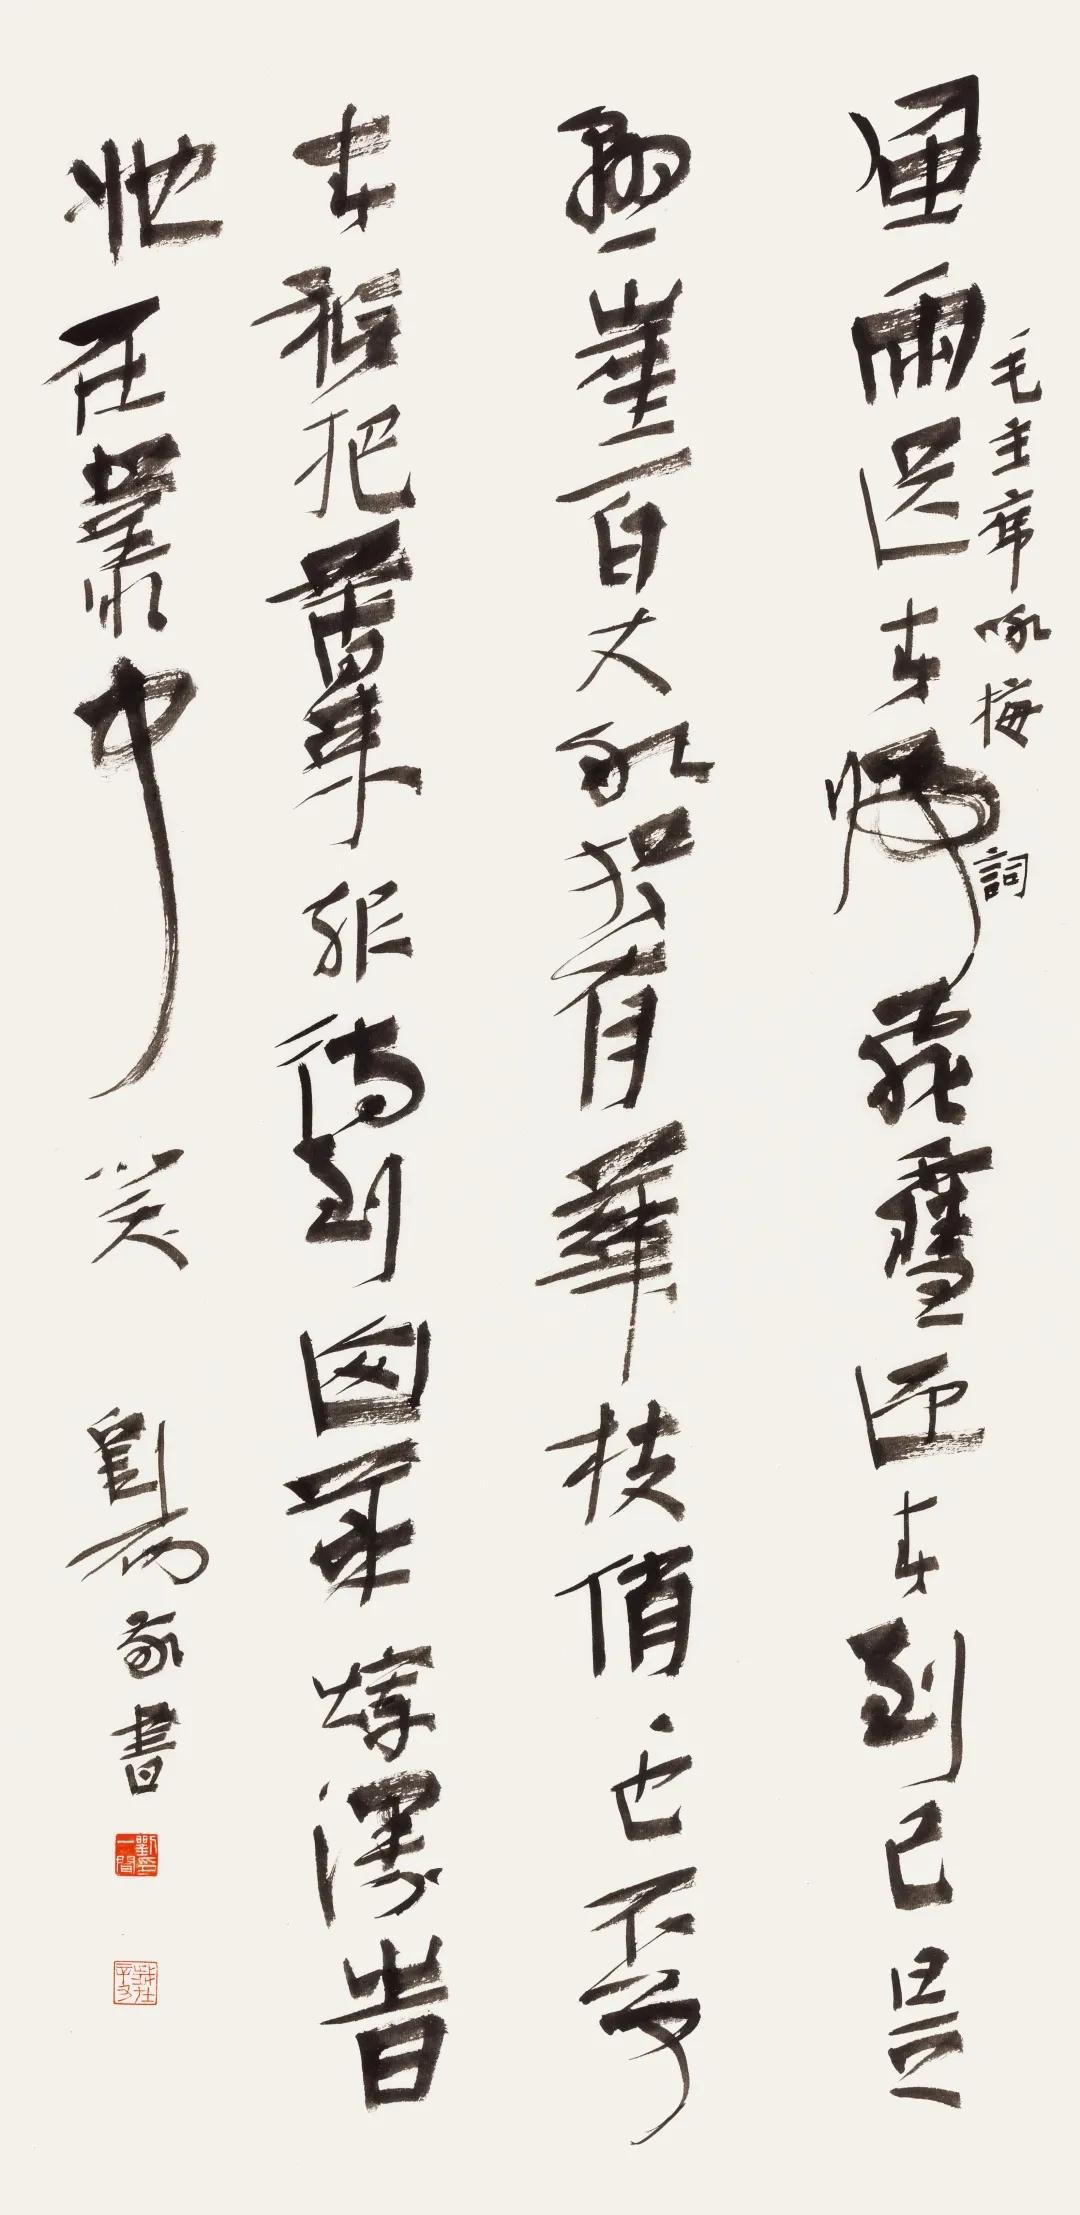 風雨送春歸飛雪迎春到已是
毛主席咏梅詞
懸崖百丈冰猶有華枝俏〻也不爭
春祇把春來報待到山華爛漫旹
她在叢中笑 劉 敬書